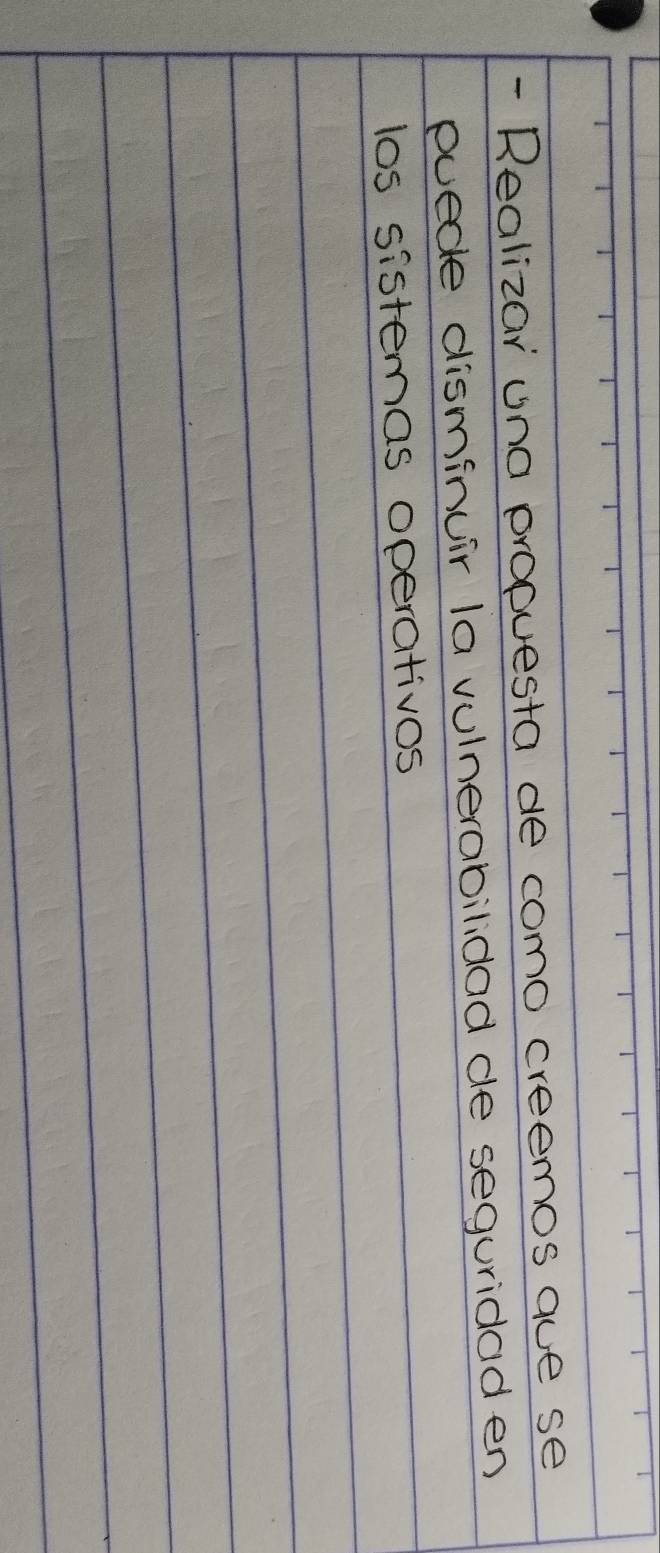 - Realizar una propuesta de como creemos que se
puede disminuir la vulnerabilidad de seguridad en
los sistemas operativos